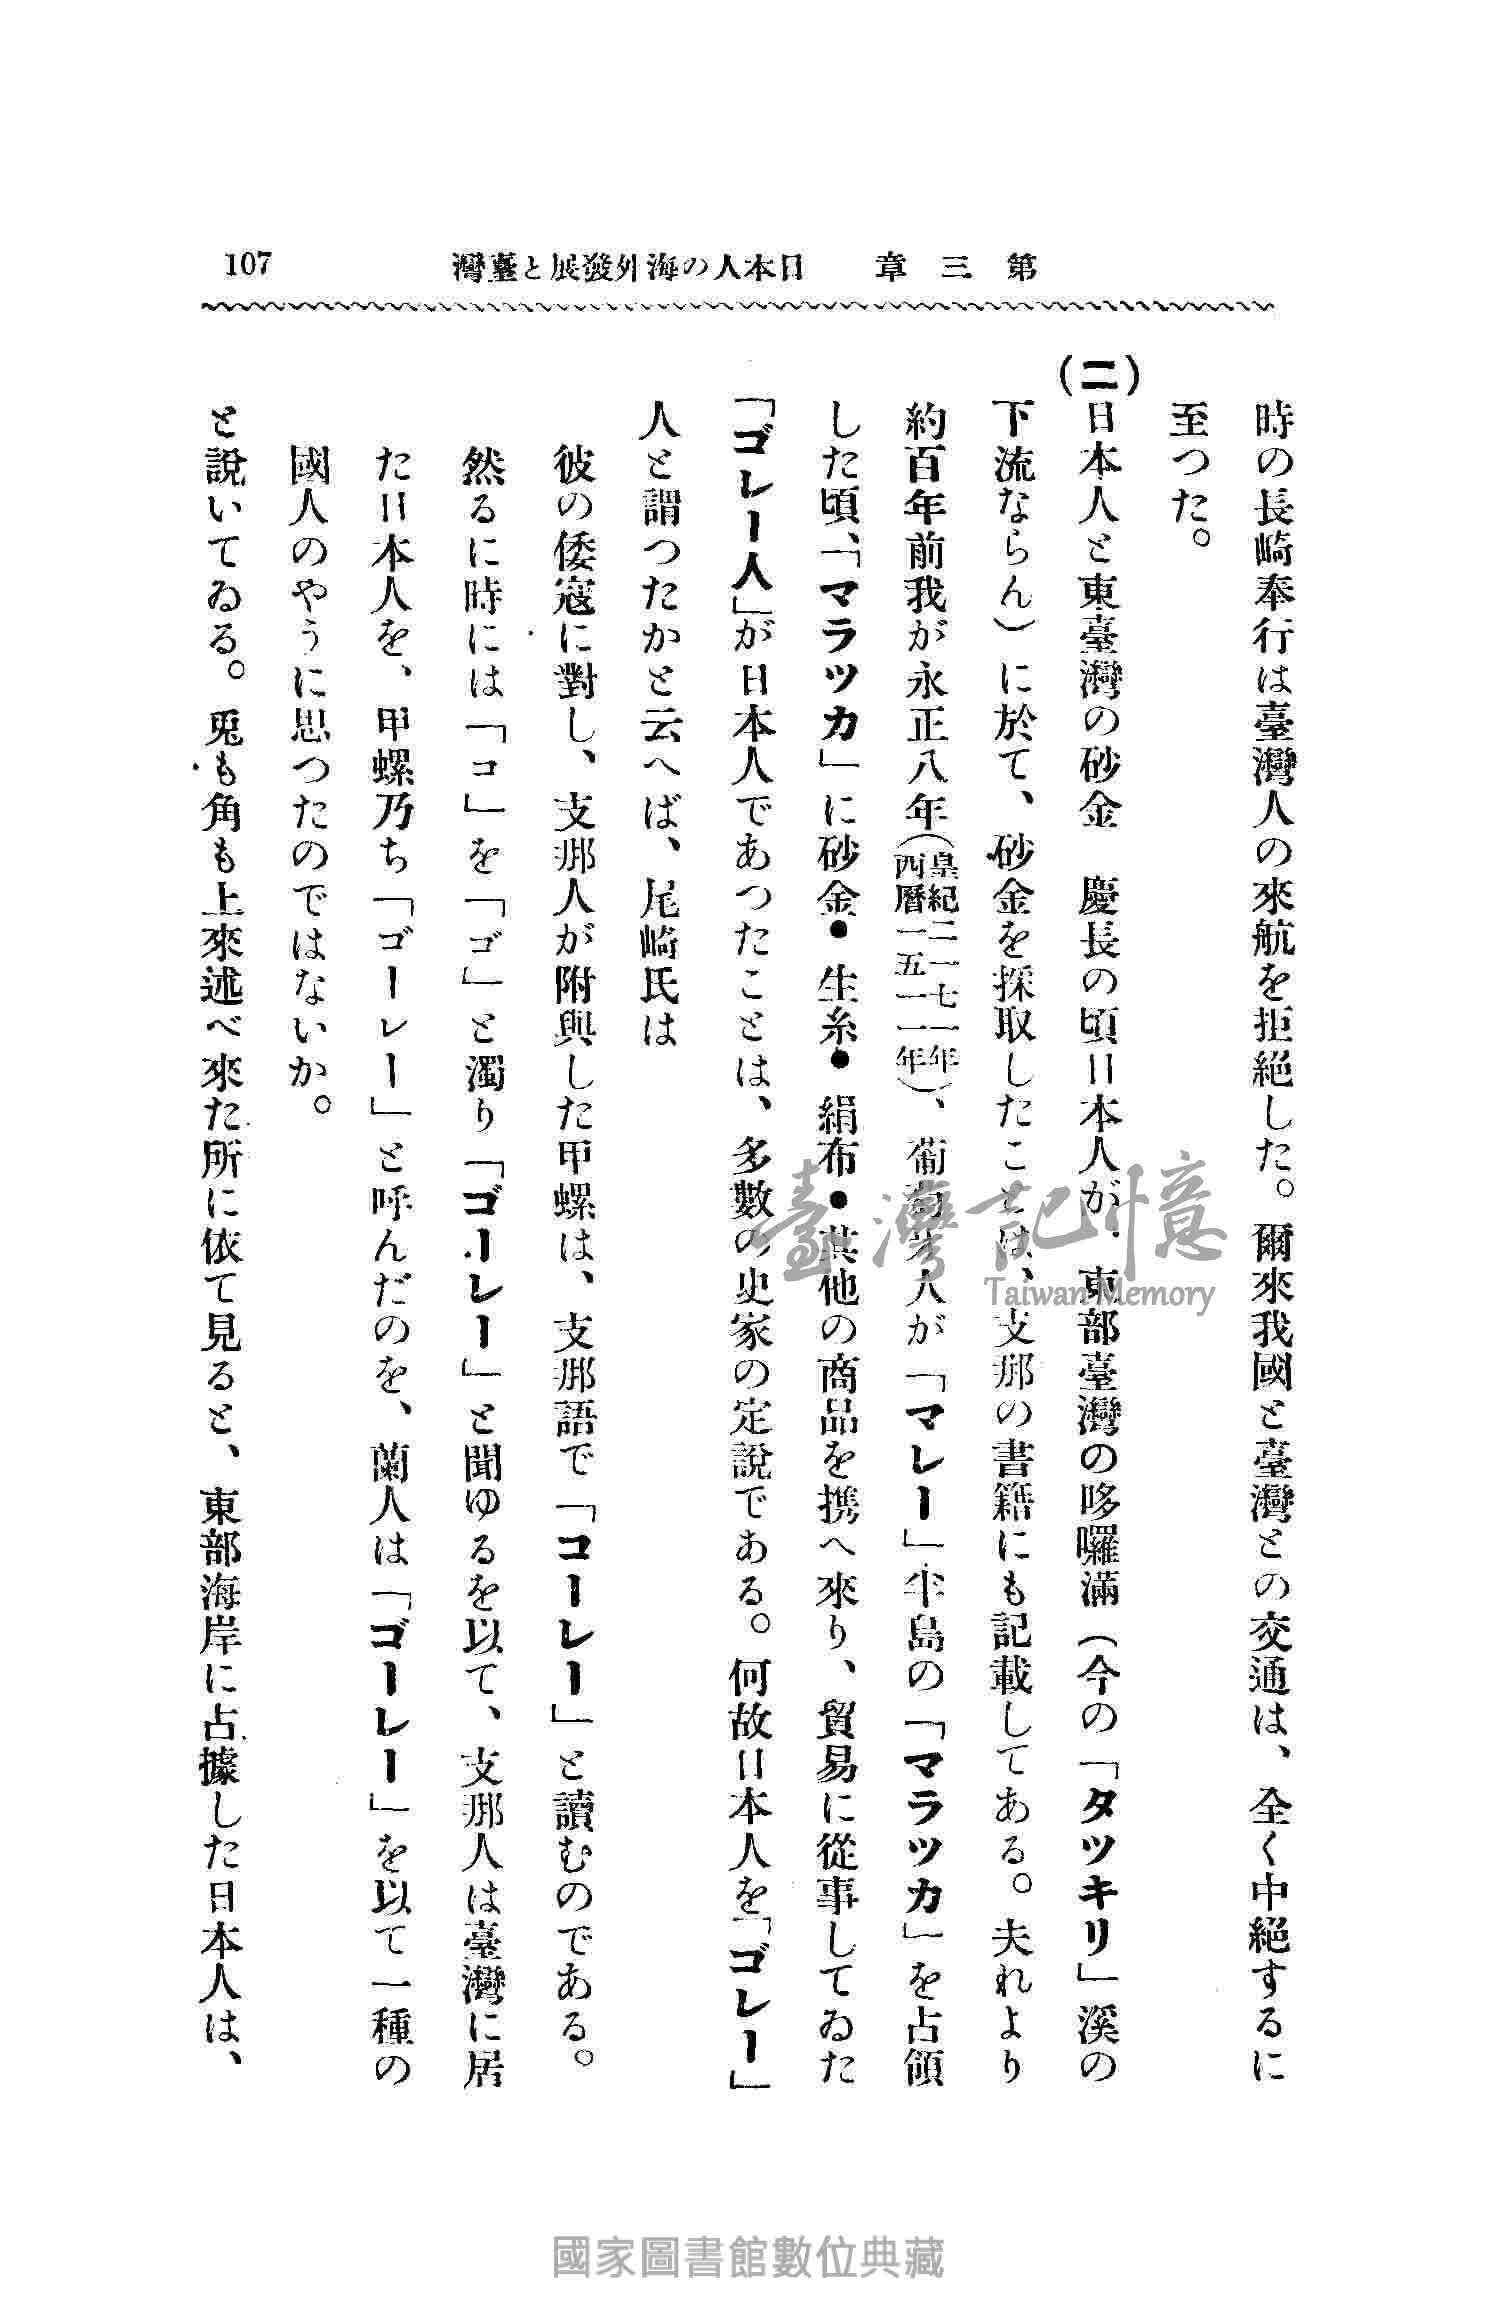 第三章　日本人の海外發展と臺灣
107
時の長崎奉行は臺灣人の來航を拒絕した。爾來我國と臺灣との交通は、全く中絕するに
至つた。
(二)日本人と東臺灣の砂金　慶長の頃日本人が、東部臺灣の哆囉滿（今の「タツキリ」溪の
下流ならん）に於て、砂金を採取したことは、支那の書籍にも記載してある。夫れより
約百年前我が永正八年（皇紀二一七一年西曆一五一一年）、葡萄牙人が「マレー」半島の「マラツカ」を占領
した頃、「マラツカ」に砂金・生糸・絹布・其他の商品を携へ來り、貿易に從事してゐた
「ゴレー人」が日本人であつたことは、多數の史家の定說である。何故日本人を「ゴレー」
人と謂つたかと云へば、尾崎氏は
彼の倭寇に對し、支那人が附與した甲螺は、支那語で「コーレー」と讀むのである。
然るに時には「コ」を「ゴ」と濁り「ゴーレー」と聞ゆるを以て、支那人は臺灣に居
た日本人を、甲螺乃ち「ゴーレー」と呼んだのを、蘭人は「ゴーレー」を以て一種の
國人のやうに思つたのではないか。
と說いてゐる。兎も角も上來述べ來た所に依て見ると、東部海岸に占據した日本人は、
臺灣記憶
Taiwan Memory
國家圖書館數位典藏